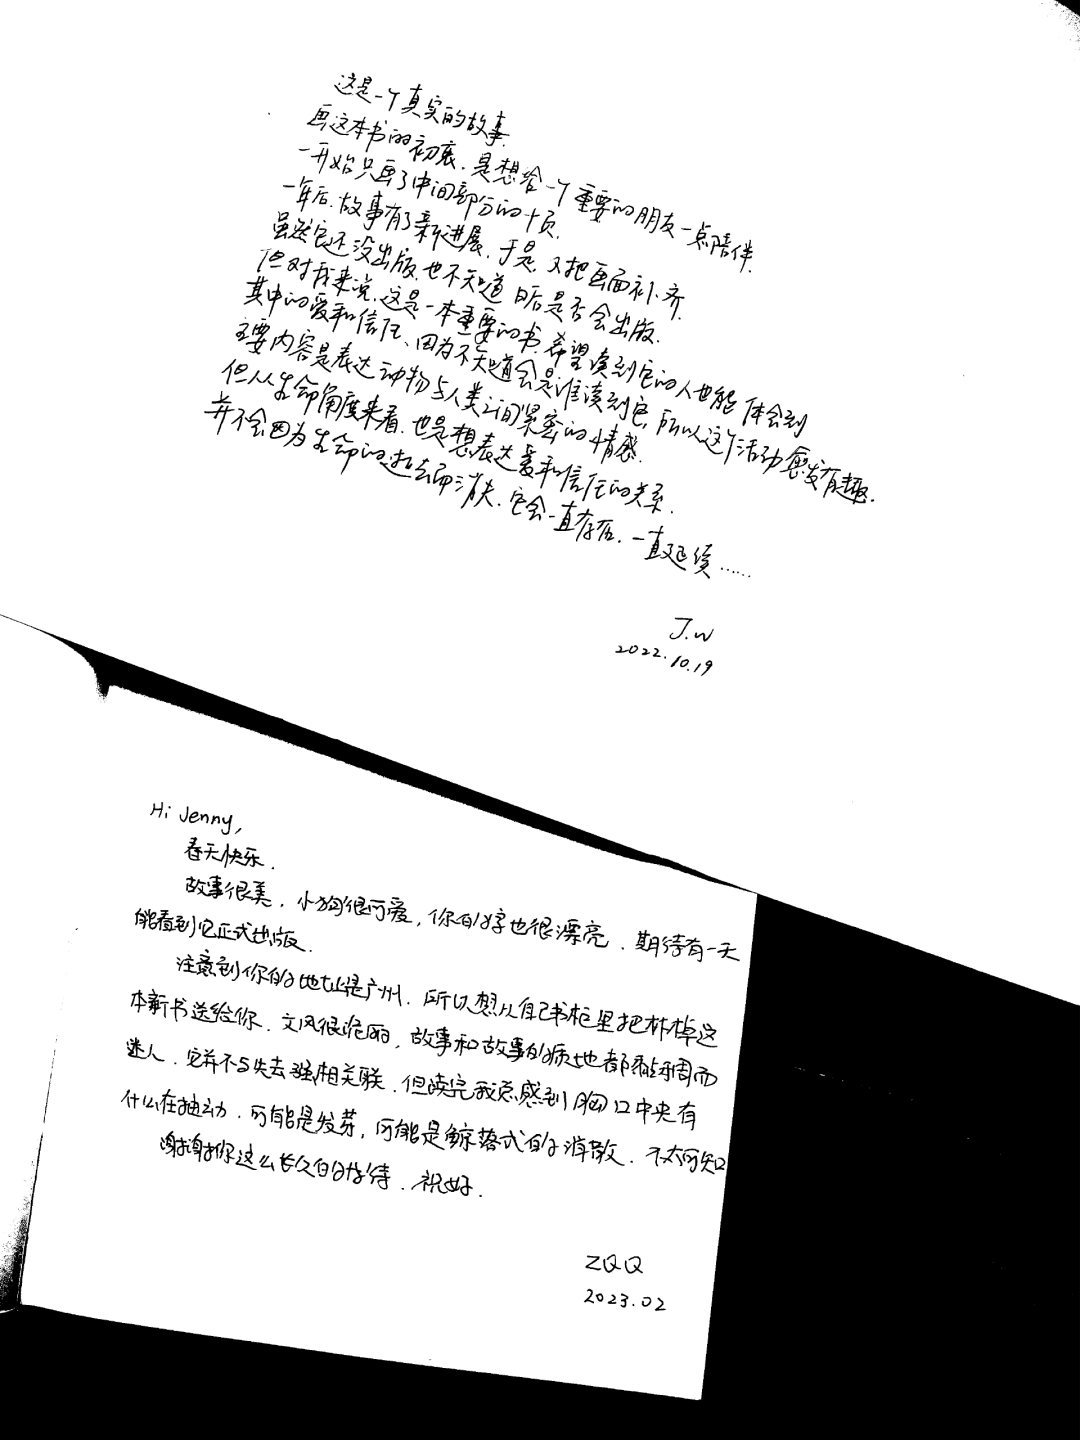 这是一个真实的故事.
画这本书的初衷.是想给一个重要的朋友一点陪伴.
一开始只画了中间部分的十页.
一年后.故事有了新进展.于是.又把画面补齐.
虽然它还没出版.也不知道日后是否会出版.
但对我来说.这是一本重要的书.希望读到它的人也能体会到
其中的爱和信任、因为不知道会是谁读到它.所以这个活动愈发有趣.
主要内容是表达动物与人类之间紧密的情感.
但从生命角度来看.也是想表达爱和信任的关系.
并不会因为生命的逝去而消失.它会一直存在.一直延续……
J.W
2022.10.19
Hi Jenny,
春天快乐.
故事很美.小狗很可爱,你的字也很漂亮.期待有一天
能看到它正式出版.
注意到你的地址是广州.所以想从自己书柜里把林棹这
本新书送给你.文风很诡丽,故事和故事的质地都黏稠而
迷人.它并不与失去强相关联.但读完我总感到胸口中央有
什么在抽动.可能是发芽,可能是鲸落式的消散.不太可知
谢谢你这么长久的等待.祝好.
ZQQ
2023.02